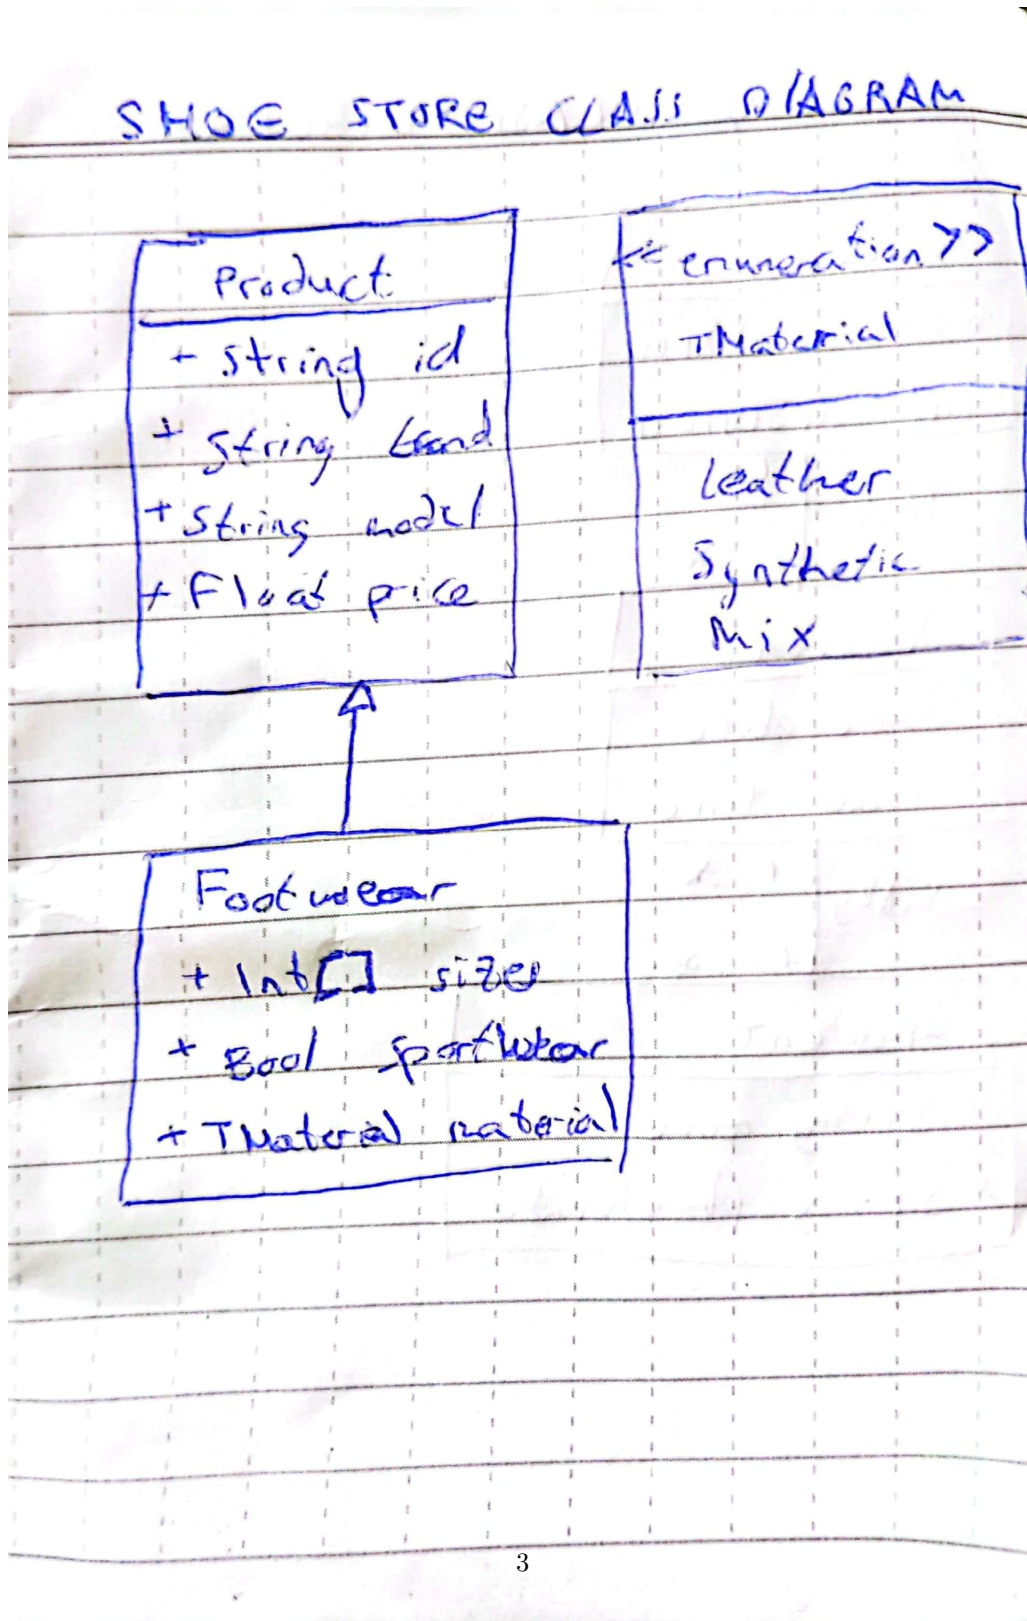 SHOE STORE CLASS DIAGRAM
Product
+ String id
+ String brand
+ String model
+ Float price
<<enumeration>>
TMaterial
Leather
Synthetic
Mix
Footwear
+ Int[] sizes
+ Bool sportwear
+ TMaterial material
3